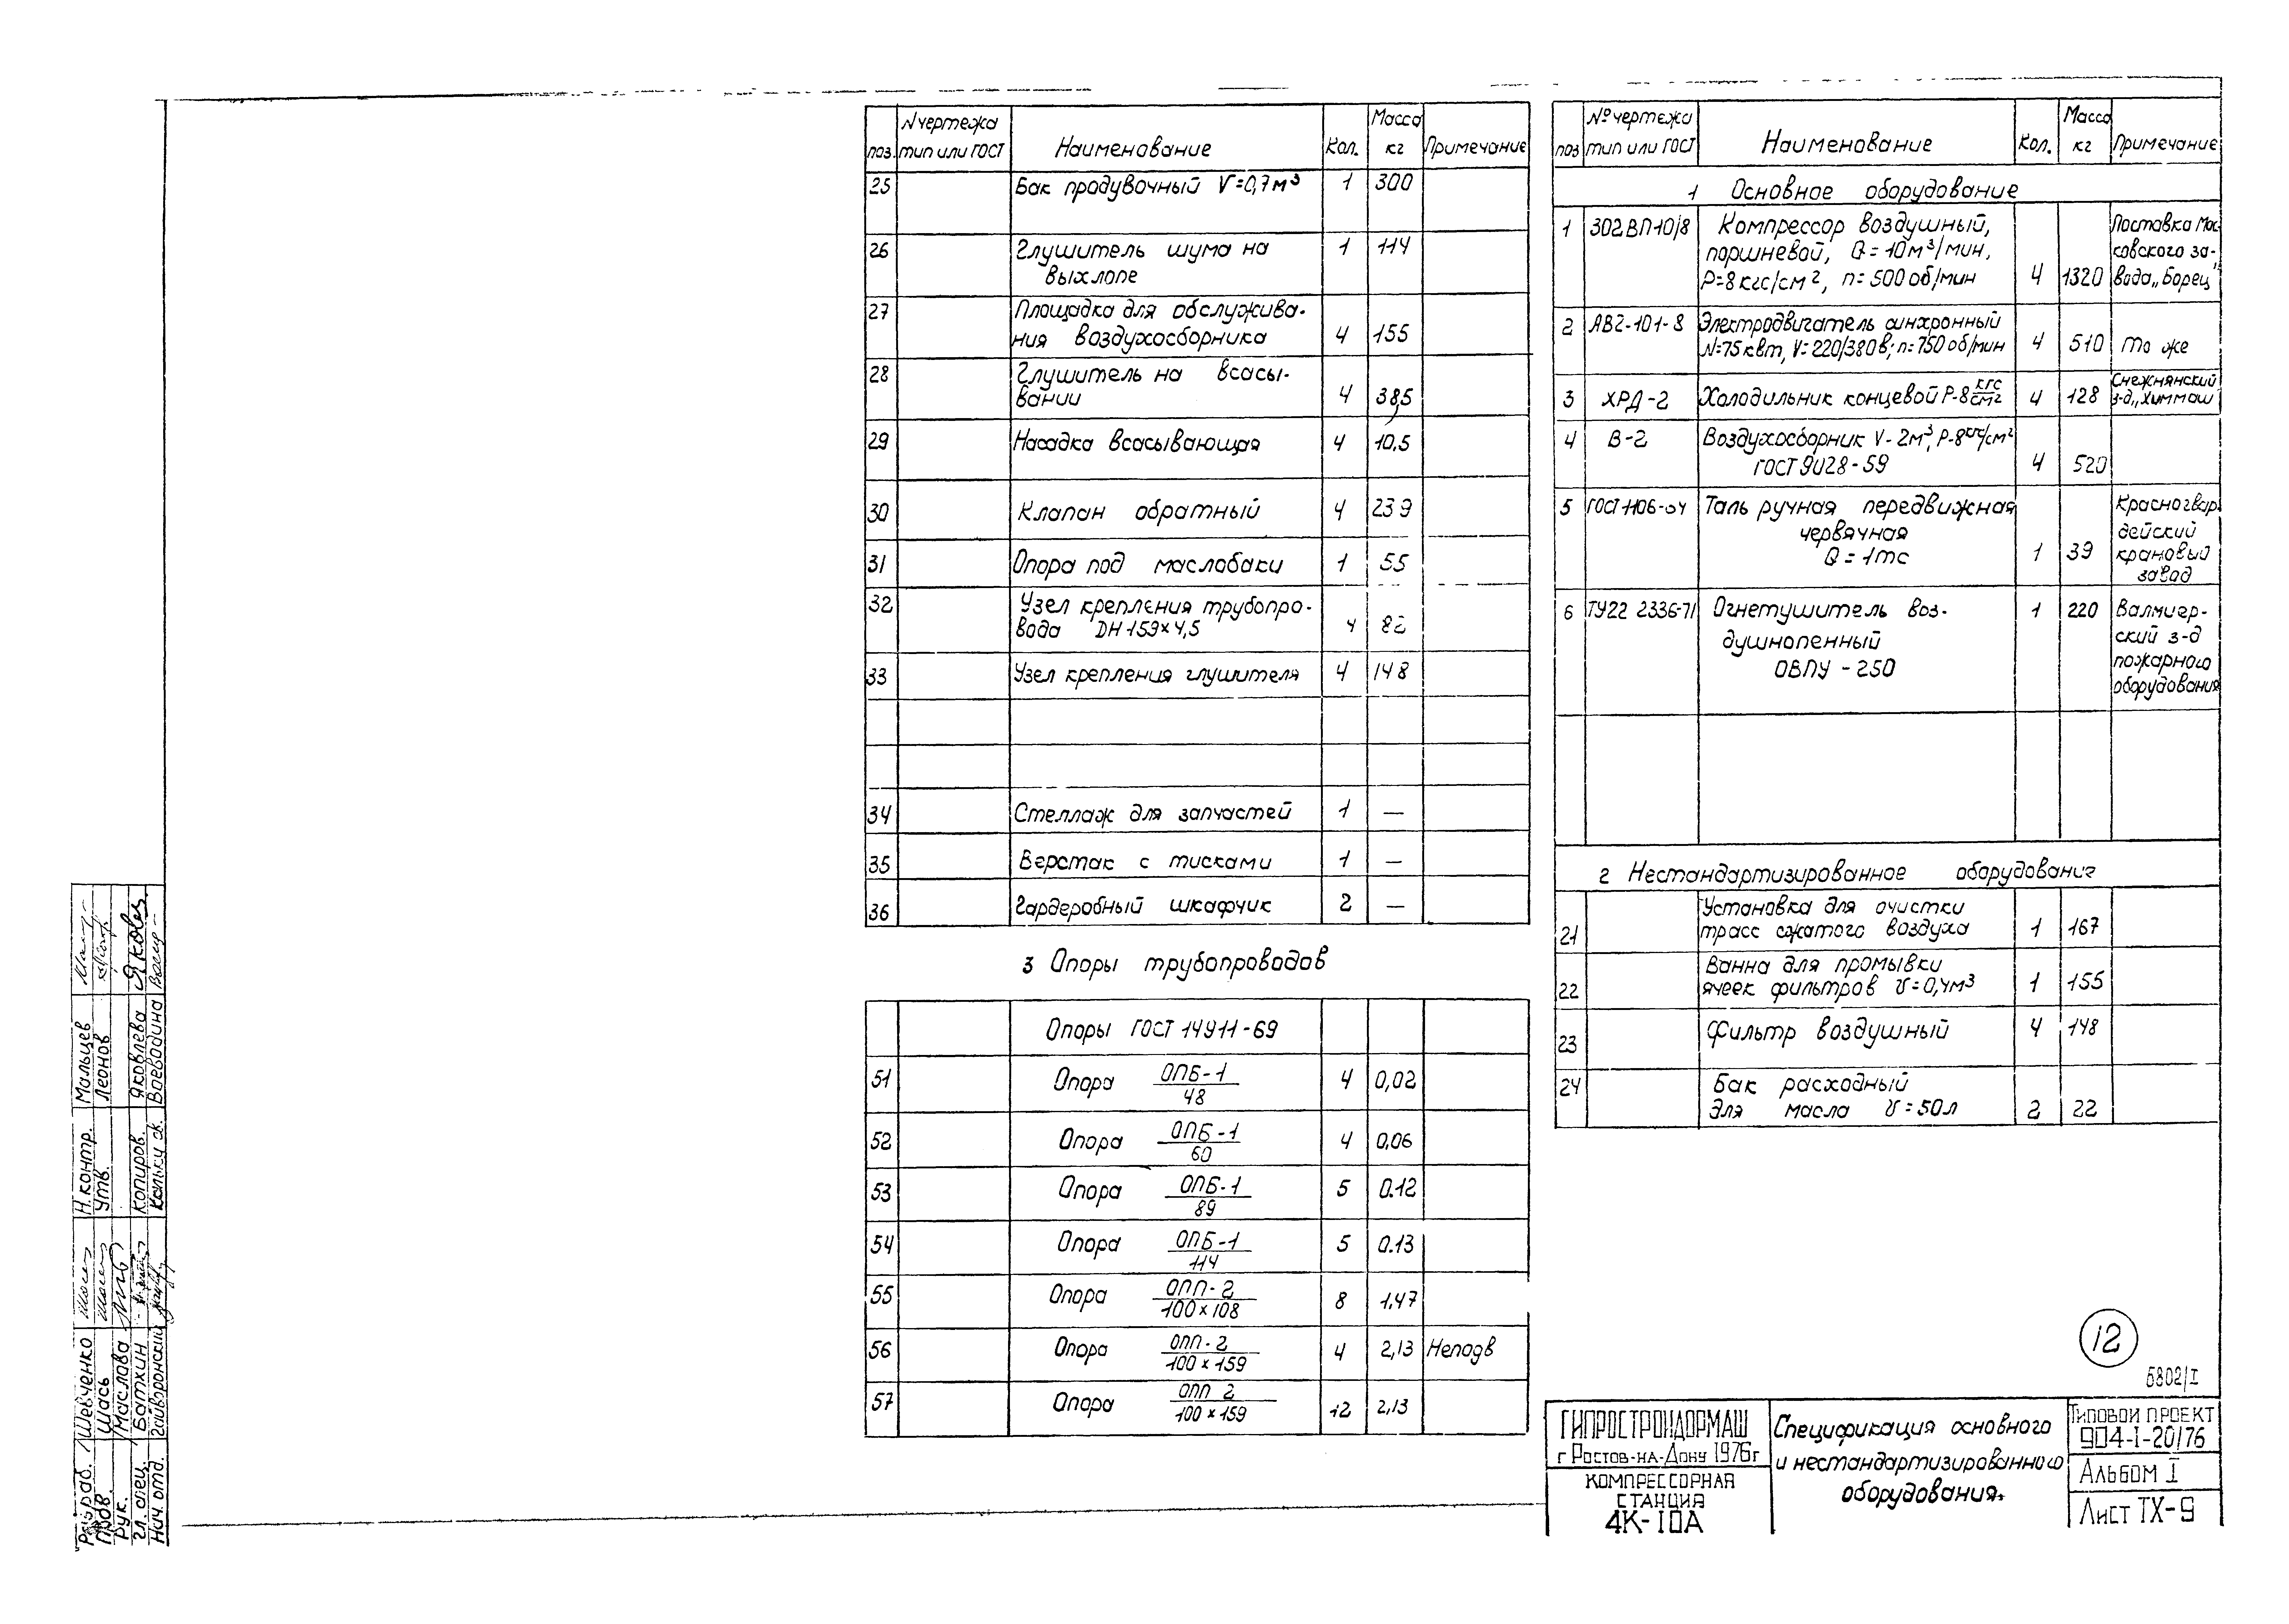 № чертежа
Масса
поз тип или ГОСТ Наименование Кол. кг Примечание
1 Основное оборудование
1 302ВП10/8 Компрессор воздушный, Поставка Мос-
поршневой, Q = 10м³/мин, ковского за-
Р=8кгс/см², п=500 об/мин 4 1320 вода „Борец"
2 АВ2-101-8 Электродвигатель синхронный
N=75 квт, V=220/380в; п=750 об/мин 4 510 То же
3 ХРД-2 Холодильник концевой Р-8 кгс/см² 4 128 Снежнянский
з-д „Химмаш
4 В-2 Воздухосборник V-2м³, Р-8кгс/см²
ГОСТ 9028-59 4 520
5 ГОСТ 1106-64 Таль ручная передвижная Красногвар-
червячная дейский
Q = 1тс 1 39 крановый
завод
6 ТУ22 2336-71 Огнетушитель воз- 1 220 Валмиер-
душнопенный ский з-д
ОВПУ-250 пожарного
оборудования
2 Нестандартизированное оборудование
21 Установка для очистки
трасс сжатого воздуха 1 167
22 Ванна для промывки
ячеек фильтров V=0,4м³ 1 155
23 Фильтр воздушный 4 148
24 Бак расходный
для масла V=50л 2 22
N чертежа
Масса
поз. тип или ГОСТ Наименование Кол. кг Примечание
25 Бак продувочный V=0,7м³ 1 300
26 Глушитель шума на 1 114
выхлопе
27 Площадка для обслужива-
ния воздухосборника 4 155
28 Глушитель на всасы-
вании 4 38,5
29 Насадка всасывающая 4 10,5
30 Клапан обратный 4 239
31 Опора под маслобаки 1 55
32 Узел крепления трубопро-
вода DH 159×4,5 4 82
33 Узел крепления глушителя 4 148
34 Стеллаж для запчастей 1 —
35 Верстак с тисками 1 —
36 Гардеробный шкафчик 2 —
3 Опоры трубопроводов
Опоры ГОСТ 14911-69
51 Опора ОПБ-1/48 4 0,02
52 Опора ОПБ-1/60 4 0,06
53 Опора ОПБ-1/89 5 0.12
54 Опора ОПБ-1/114 5 0.13
55 Опора ОПП-2/100×108 8 1.47
56 Опора ОПП-2/100×159 4 2,13 Неподв
57 Опора ОПП 2/100×159 12 2,13
12
5802/I
ГИПРОСТРОЙДОРМАШ
г Ростов-на-Дону 1976г
КОМПРЕССОРНАЯ
СТАНЦИЯ
4К-10А
Спецификация основного
и нестандартизированного
оборудования.
ТИПОВОЙ ПРОЕКТ
904-I-20/76
АЛЬБОМ I
Лист ТХ-9
Разраб. Шевченко
Пров. Шась
Рук. Маслова
Гл. спец. Баткин
Нач. отд. Гайворонский
Н. контр. Мальцев
Утв. Леонов
Копиров. Яковлева
Кальку ск. Воеводина